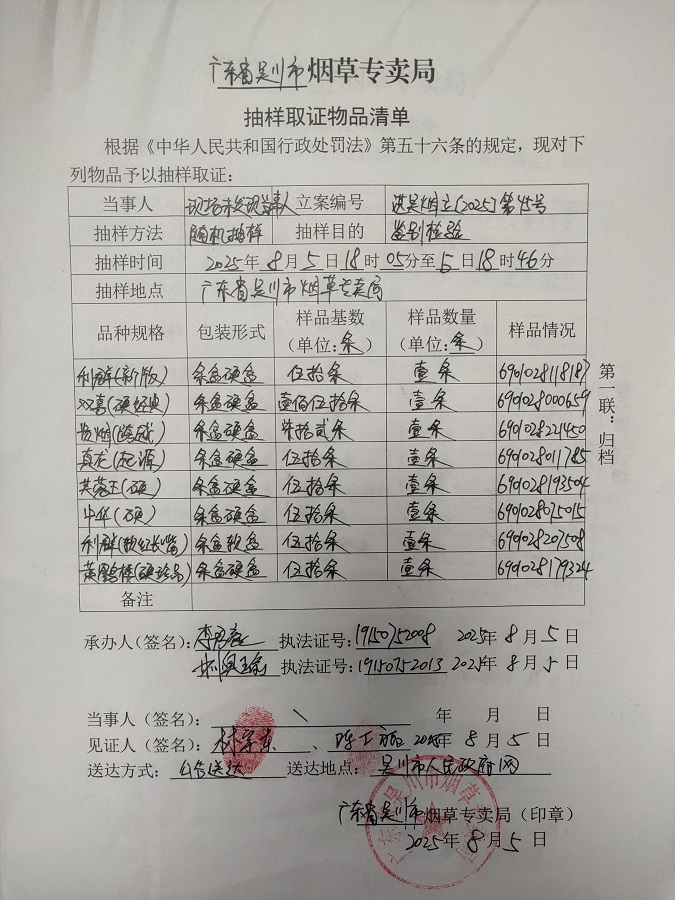 广东省吴川市烟草专卖局
抽样取证物品清单
根据《中华人民共和国行政处罚法》第五十六条的规定，现对下
列物品予以抽样取证：
当事人 现场未发现当事人 立案编号 湛吴烟立[2025]第45号
抽样方法 随机抽样 抽样目的 鉴别检验
抽样时间 2025年8月5日18时05分至5日18时46分
抽样地点 广东省吴川市烟草专卖局
品种规格 包装形式 样品基数（单位:条） 样品数量（单位:条） 样品情况
利群(新版) 条盒硬盒 伍拾条 壹条 6901028118187
双喜(硬经典) 条盒硬盒 壹佰伍拾条 壹条 6901028000659
贵烟(跨越) 条盒硬盒 柒拾贰条 壹条 6901028221450
真龙(起源) 条盒硬盒 伍拾条 壹条 6901028011785
芙蓉王(硬) 条盒硬盒 伍拾条 壹条 6901028193504
中华(硬) 条盒硬盒 伍拾条 壹条 6901028075015
利群(软红长嘴) 条盒软盒 伍拾条 壹条 6901028207508
黄鹤楼(硬珍品) 条盒硬盒 伍拾条 壹条 6901028179324
备注
第一联：归档
承办人（签名）： 执法证号:19150752008 2025年8月5日
执法证号:19150752013 2025年8月5日
当事人（签名）：\ 年 月 日
见证人（签名）：林宇东、 2025年8月5日
送达方式：公告送达 送达地点：吴川市人民政府网
广东省吴川市烟草专卖局（印章）
2025年8月5日